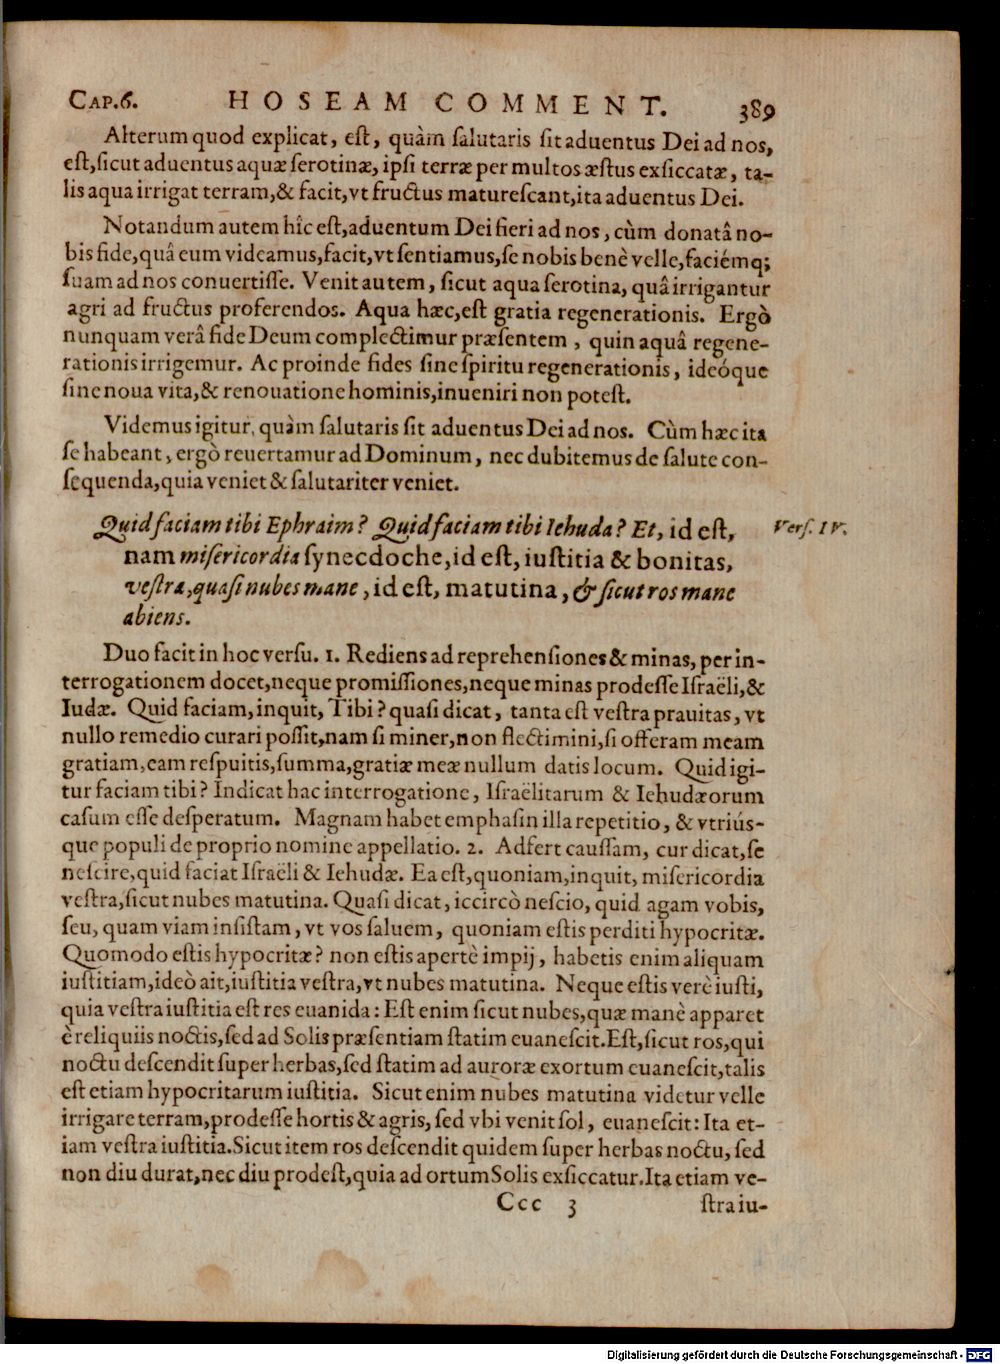 CAP.6. HOSEAM COMMENT. 389
Alterum quod explicat, est, quàm salutaris sit aduentus Dei ad nos,
est, sicut aduentus aquæ serotinæ, ipsi terræ per multos æstus exsiccatæ, ta-
lis aqua irrigat terram, & facit, vt fructus maturescant, ita aduentus Dei.
Notandum autem hîc est, aduentum Dei fieri ad nos, cùm donatâ no-
bis fide, quâ eum videamus, facit, vt sentiamus, se nobis benè velle, faciémq;
suam ad nos conuertisse. Venit autem, sicut aqua serotina, quâ irrigantur
agri ad fructus proferendos. Aqua hæc, est gratia regenerationis. Ergò
nunquam verâ fide Deum complectimur præsentem, quin aquâ regene-
rationis irrigemur. Ac proinde fides sine spiritu regenerationis, ideóque
sine noua vita, & renouatione hominis, inueniri non potest.
Videmus igitur, quàm salutaris sit aduentus Dei ad nos. Cùm hæc ita
se habeant, ergò reuertamur ad Dominum, nec dubitemus de salute con-
sequenda, quia veniet & salutariter veniet.
Quid faciam tibi Ephraim? Quid faciam tibi Iehuda? Et, id est, Vers. IV.
nam misericordia synecdoche, id est, iustitia & bonitas,
vestra, quasi nubes mane, id est, matutina, & sicut ros mane
abiens.
Duo facit in hoc versu. 1. Rediens ad reprehensiones & minas, per in-
terrogationem docet, neque promissiones, neque minas prodesse Israëli, &
Iudæ. Quid faciam, inquit, Tibi? quasi dicat, tanta est vestra prauitas, vt
nullo remedio curari possit, nam si miner, non flectimini, si offeram meam
gratiam, eam respuitis, summa, gratiæ meæ nullum datis locum. Quid igi-
tur faciam tibi? Indicat hac interrogatione, Israëlitarum & Iehudæorum
casum esse desperatum. Magnam habet emphasin illa repetitio, & vtriús-
que populi de proprio nomine appellatio. 2. Adfert caussam, cur dicat, se
nescire, quid faciat Israëli & Iehudæ. Ea est, quoniam, inquit, misericordia
vestra, sicut nubes matutina. Quasi dicat, iccircò nescio, quid agam vobis,
seu, quam viam insistam, vt vos saluem, quoniam estis perditi hypocritæ.
Quomodo estis hypocritæ? non estis apertè impij, habetis enim aliquam
iustitiam, ideò ait, iustitia vestra, vt nubes matutina. Neque estis verè iusti,
quia vestra iustitia est res euanida: Est enim sicut nubes, quæ manè apparet
è reliquiis noctis, sed ad Solis præsentiam statim euanescit. Est, sicut ros, qui
noctu descendit super herbas, sed statim ad auroræ exortum euanescit, talis
est etiam hypocritarum iustitia. Sicut enim nubes matutina videtur velle
irrigare terram, prodesse hortis & agris, sed vbi venit sol, euanescit: Ita et-
iam vestra iustitia. Sicut item ros descendit quidem super herbas noctu, sed
non diu durat, nec diu prodest, quia ad ortum Solis exsiccatur. Ita etiam ve-
Ccc 3 stra iu-
Digitalisierung gefördert durch die Deutsche Forschungsgemeinschaft - DFG